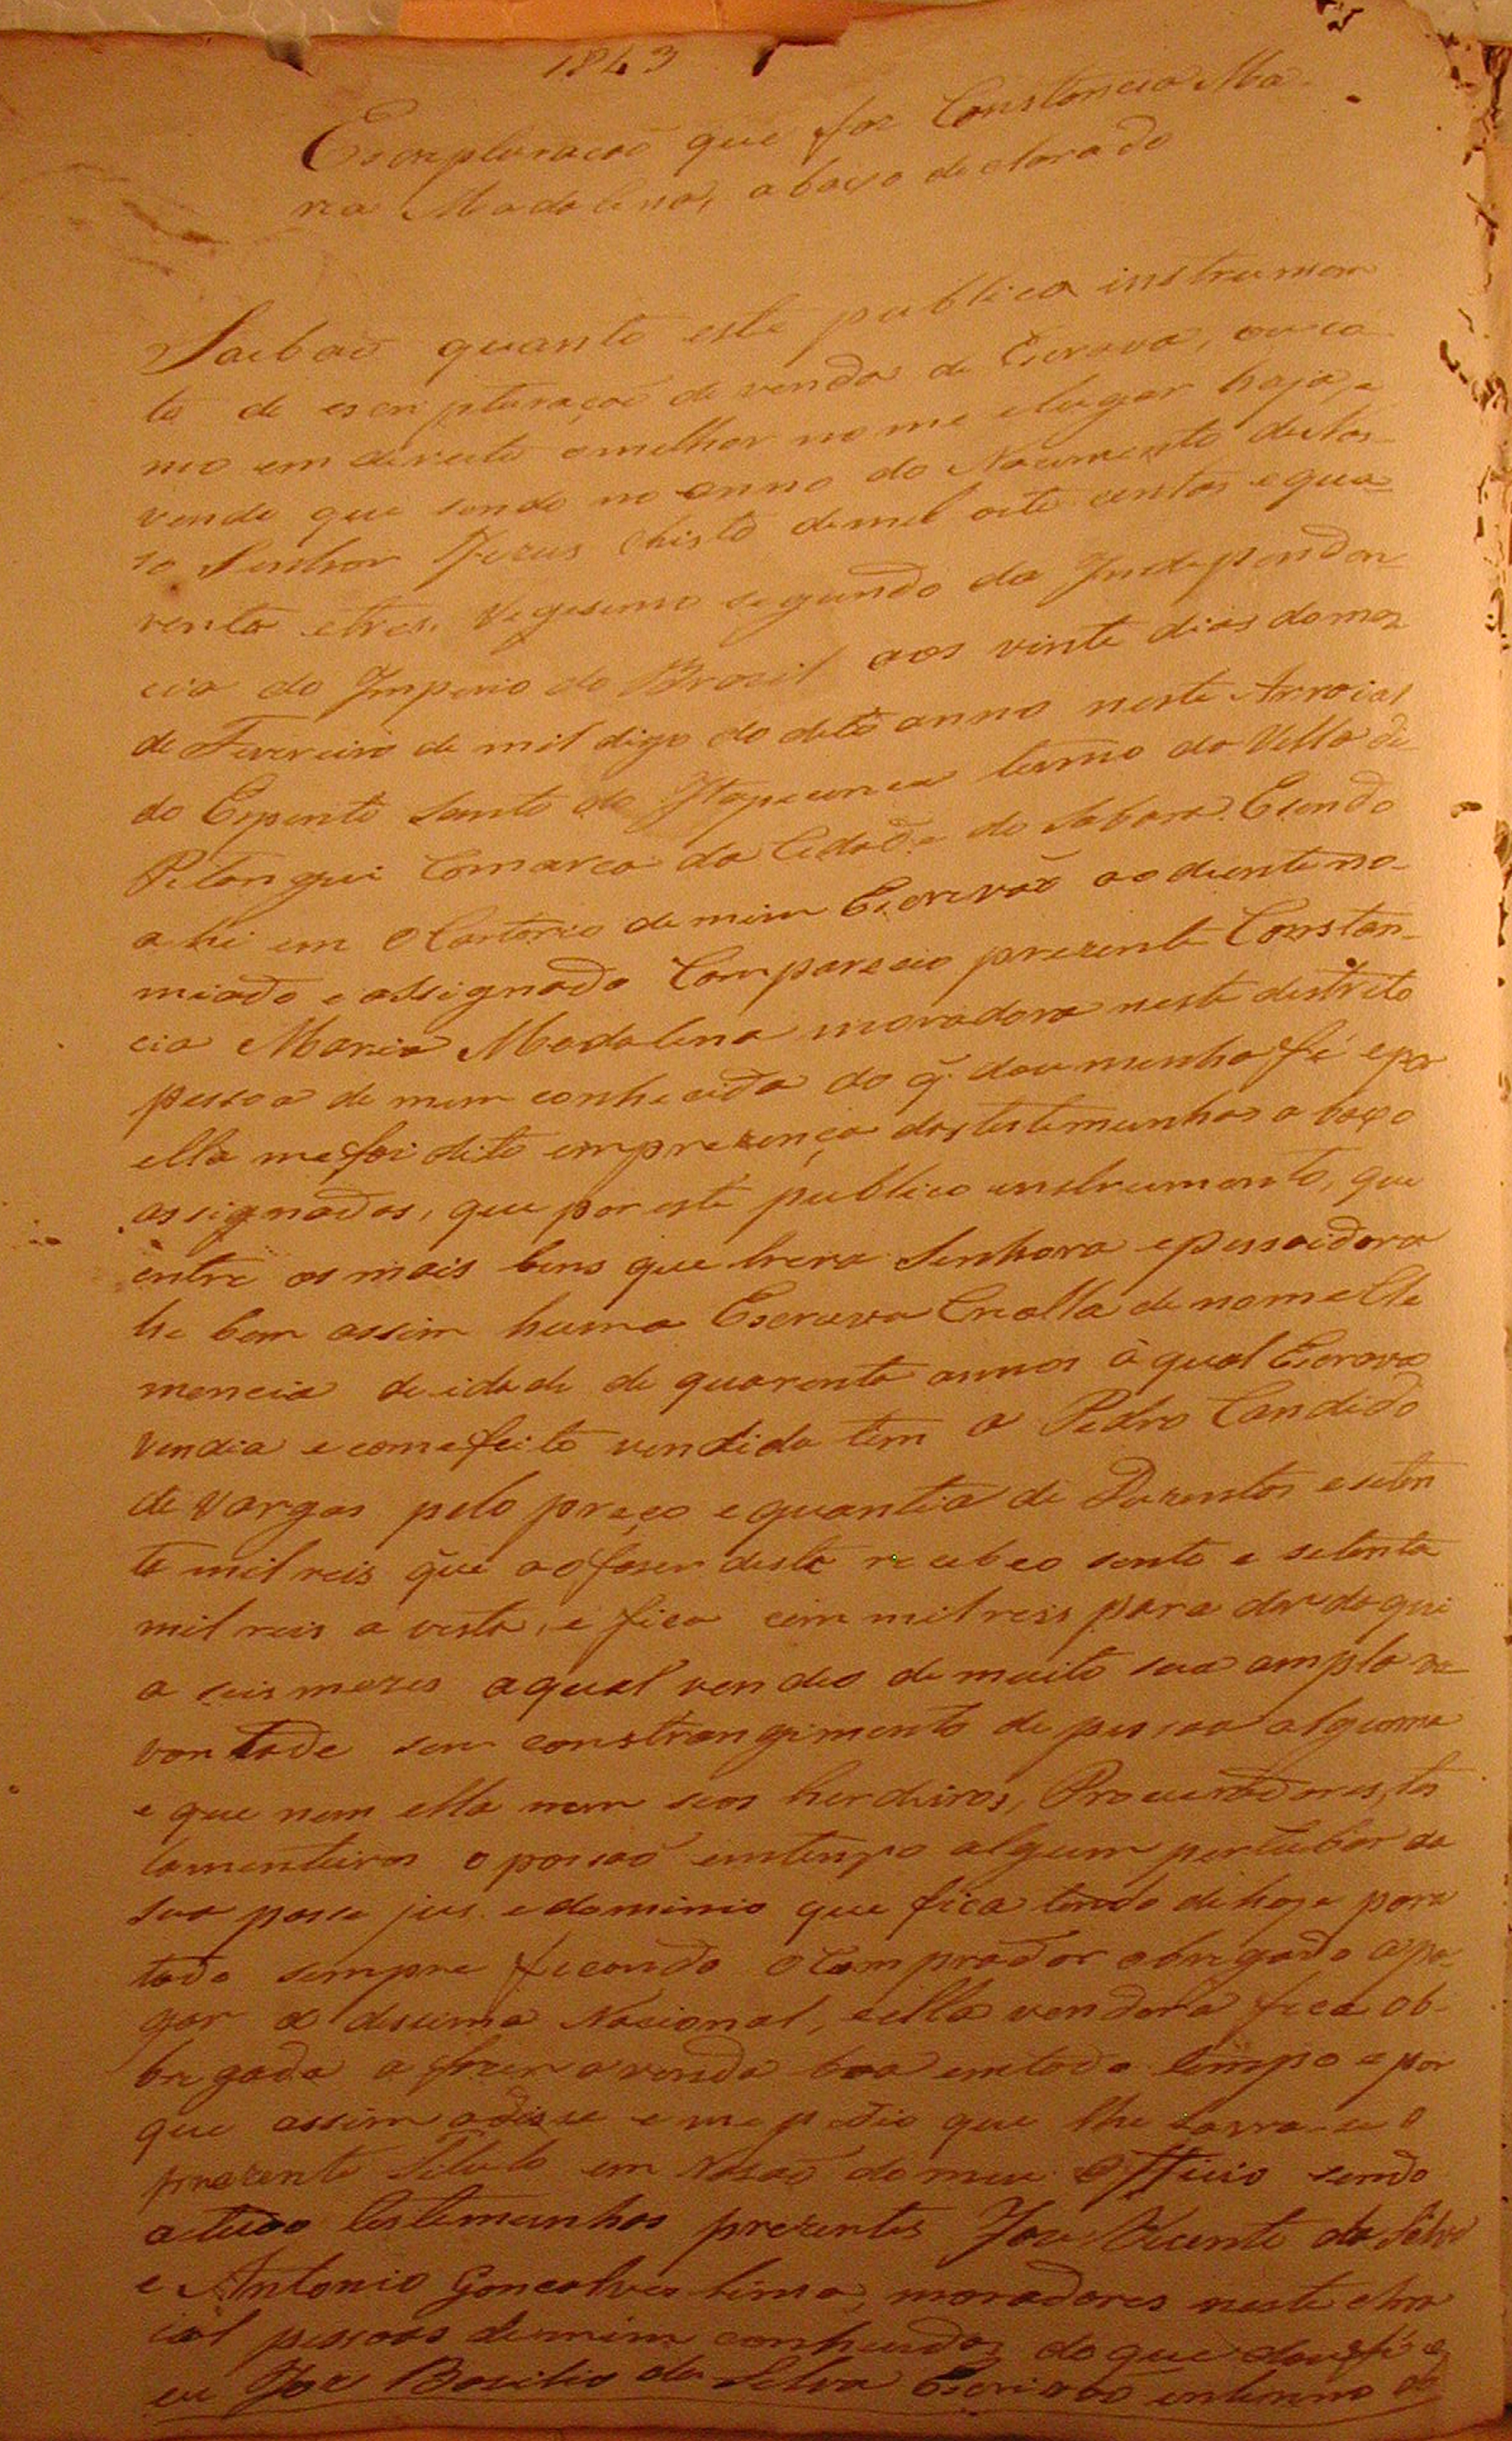 1843
Escripturacao que faz Constancia Ma-
ria Madalena, abaixo declarado
Saibao quanto este publica instrumen
to de escripturaçao de venda de Escrava, ou co
mo em dereito e melhor nome e lugar haja, e
vendo que sendo no anno do Nacimento de Nos-
so Senhor Jezus Christo de mil oito centos e qua-
renta e tres, Vegesimo segundo da Independen
cia do Imperio do Brasil aos vinte dias do mez
de Fevereiro de mil digo do dito anno neste Arraial
do Espirito Santo da Itapecerica termo da Villa de
Pitangui Comarca da Cidade do Sabará. E sendo
ahi em o Cartorio de mim Escrivaõ ao diente no-
miado e assignado Compareceo prezente Constan-
cia Maria Madalena moradora neste destrito
pessoa de mim conhecida do q̃ dou minha fé e por
ella me foi dito em prezença das testemunhas a baxo
assignados, que por este publico instrumento, que
entre os mais bens que hera Senhora e pessuidora
he bem assim huma Escrava Criolla de nome Cle
mencia de idade de quarenta annos à qual Escrava
vendia e com efeito vendida tem a Pedro Candido
de Vargas pelo preço e quantia de Duzentos e seten
ta mil reis que ao fazer desta recebeo sento e setenta
mil reis a vista, e fica cem mil reis para dar daqui
a seis mezes a qual vendeo de muito sua ampla
vontade sem constrangimento de pessoa alguma
e que nem ella nem seos herdeiros, Procuradores, tes
tamenteiros o possaõ em tempo algum pertubar da
sua posse jus e dominio que fica tendo de hoje para
todo sempre ficando o Comprador obrigado a pa-
gar a desima Nacional, e ella vendora fica ob-
brigada a fazer a venda boa em todo tempo e por
que assim o disse e me pedio que lhe lavra-se o
prezente Titulo em rasaõ do meu Officio sendo
a tudo testemunhas prezentes Joze Vicente da Silva
e Antonio Goncalves Lima, moradores neste Arra
ial pessoas de mim conhecidas do que dou fé e
eu Joze Bazilio da Silva Escrivaõ enterino